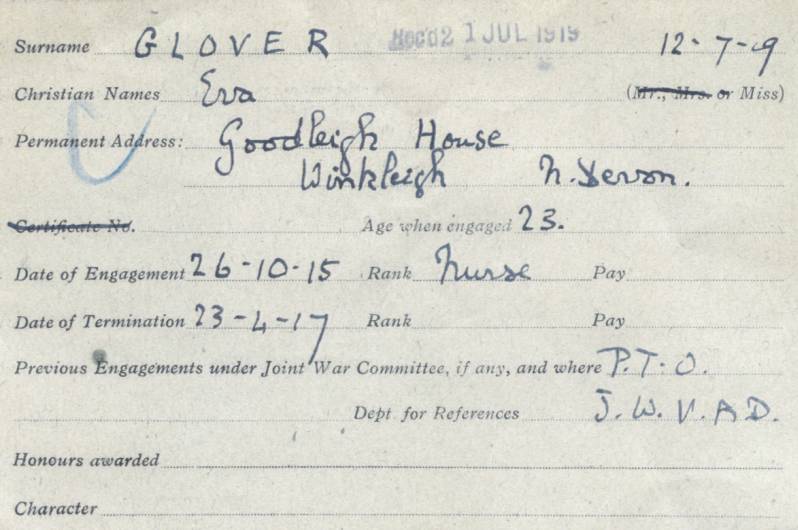 Surname GLOVER Rec'd 21 JUL 1919 12-7-19
Christian Names Eva (Mr., Mrs. or Miss)
Permanent Address: Goodleigh House
Winkleigh N. Devon.
Certificate No. Age when engaged 23.
Date of Engagement 26-10-15 Rank Nurse Pay
Date of Termination 23-4-17 Rank Pay
Previous Engagements under Joint War Committee, if any, and where P.T.O.
Dept for References J.W.V.A.D.
Honours awarded
Character